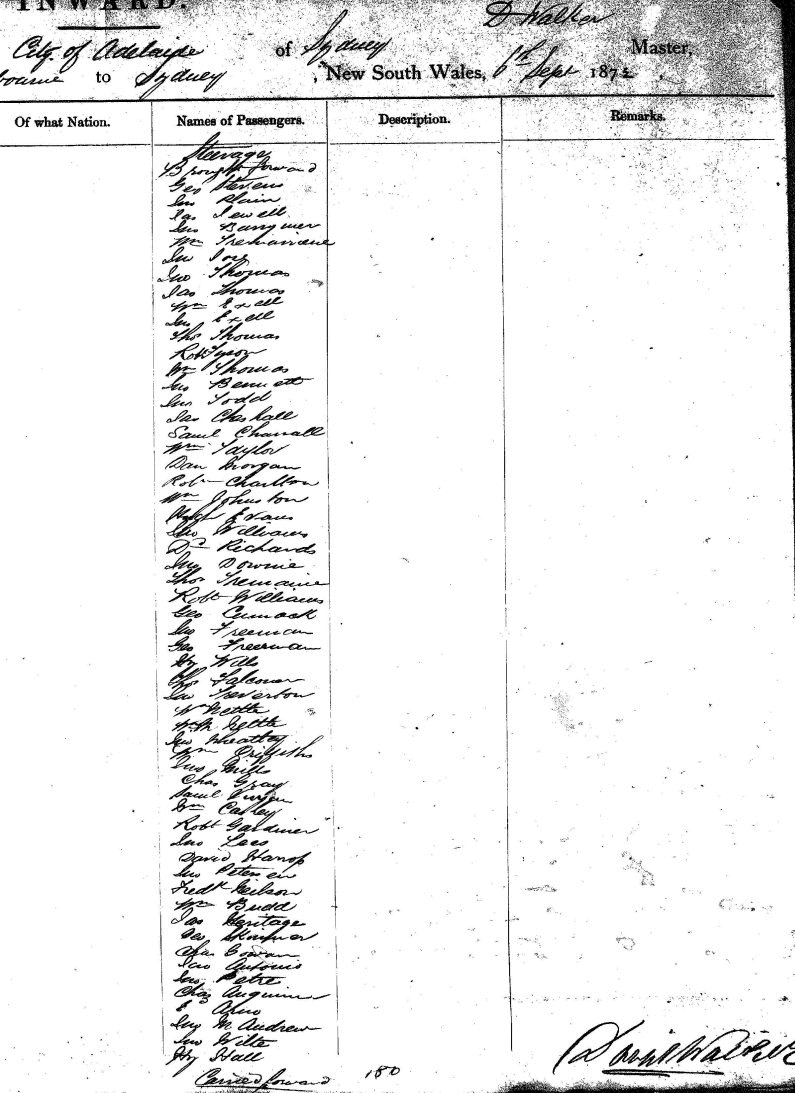 INWARD.
D Walker
City of Adelaide of Sydney Master,
bourne to Sydney, New South Wales, 6th Sept 1872.
Of what Nation. Names of Passengers. Description. Remarks.
Steerage
Brought forward
Geo Stevens
Jno Plain
Jas Jewell
Jno
Wm
Jno
Jno Thomas
Jas Thomas
Wm Exell
Jno Exell
Thos Thomas
Robt Tyson
Wm Thomas
Jno Bennett
Jno Todd
Jas
Saml
Wm Taylor
Dan Morgan
Robt Charlton
Wm Johnston
Hugh Evans
Jno Williams
Dd Richards
Jno Downie
Thos Tremaine
Robt Williams
Geo
Jno Freeman
Geo Freeman
Hy Wills
Thos Falconer
Jno Treverton
Wm Nettle
Wm Nettle
Jno Wheatley
Wm Griffiths
Jno Mills
Chas Gray
Saml
Wm
Robt Gardiner
Jno Lees
David Harrop
Jno Petersen
Fredk Neilson
Wm Budd
Jas Heritage
Geo
Chas
Jno Antonio
Jno Petre
Chas
E
M Andrew
Jno Wilts
Hy Hall
Carried forward 180
David Walker